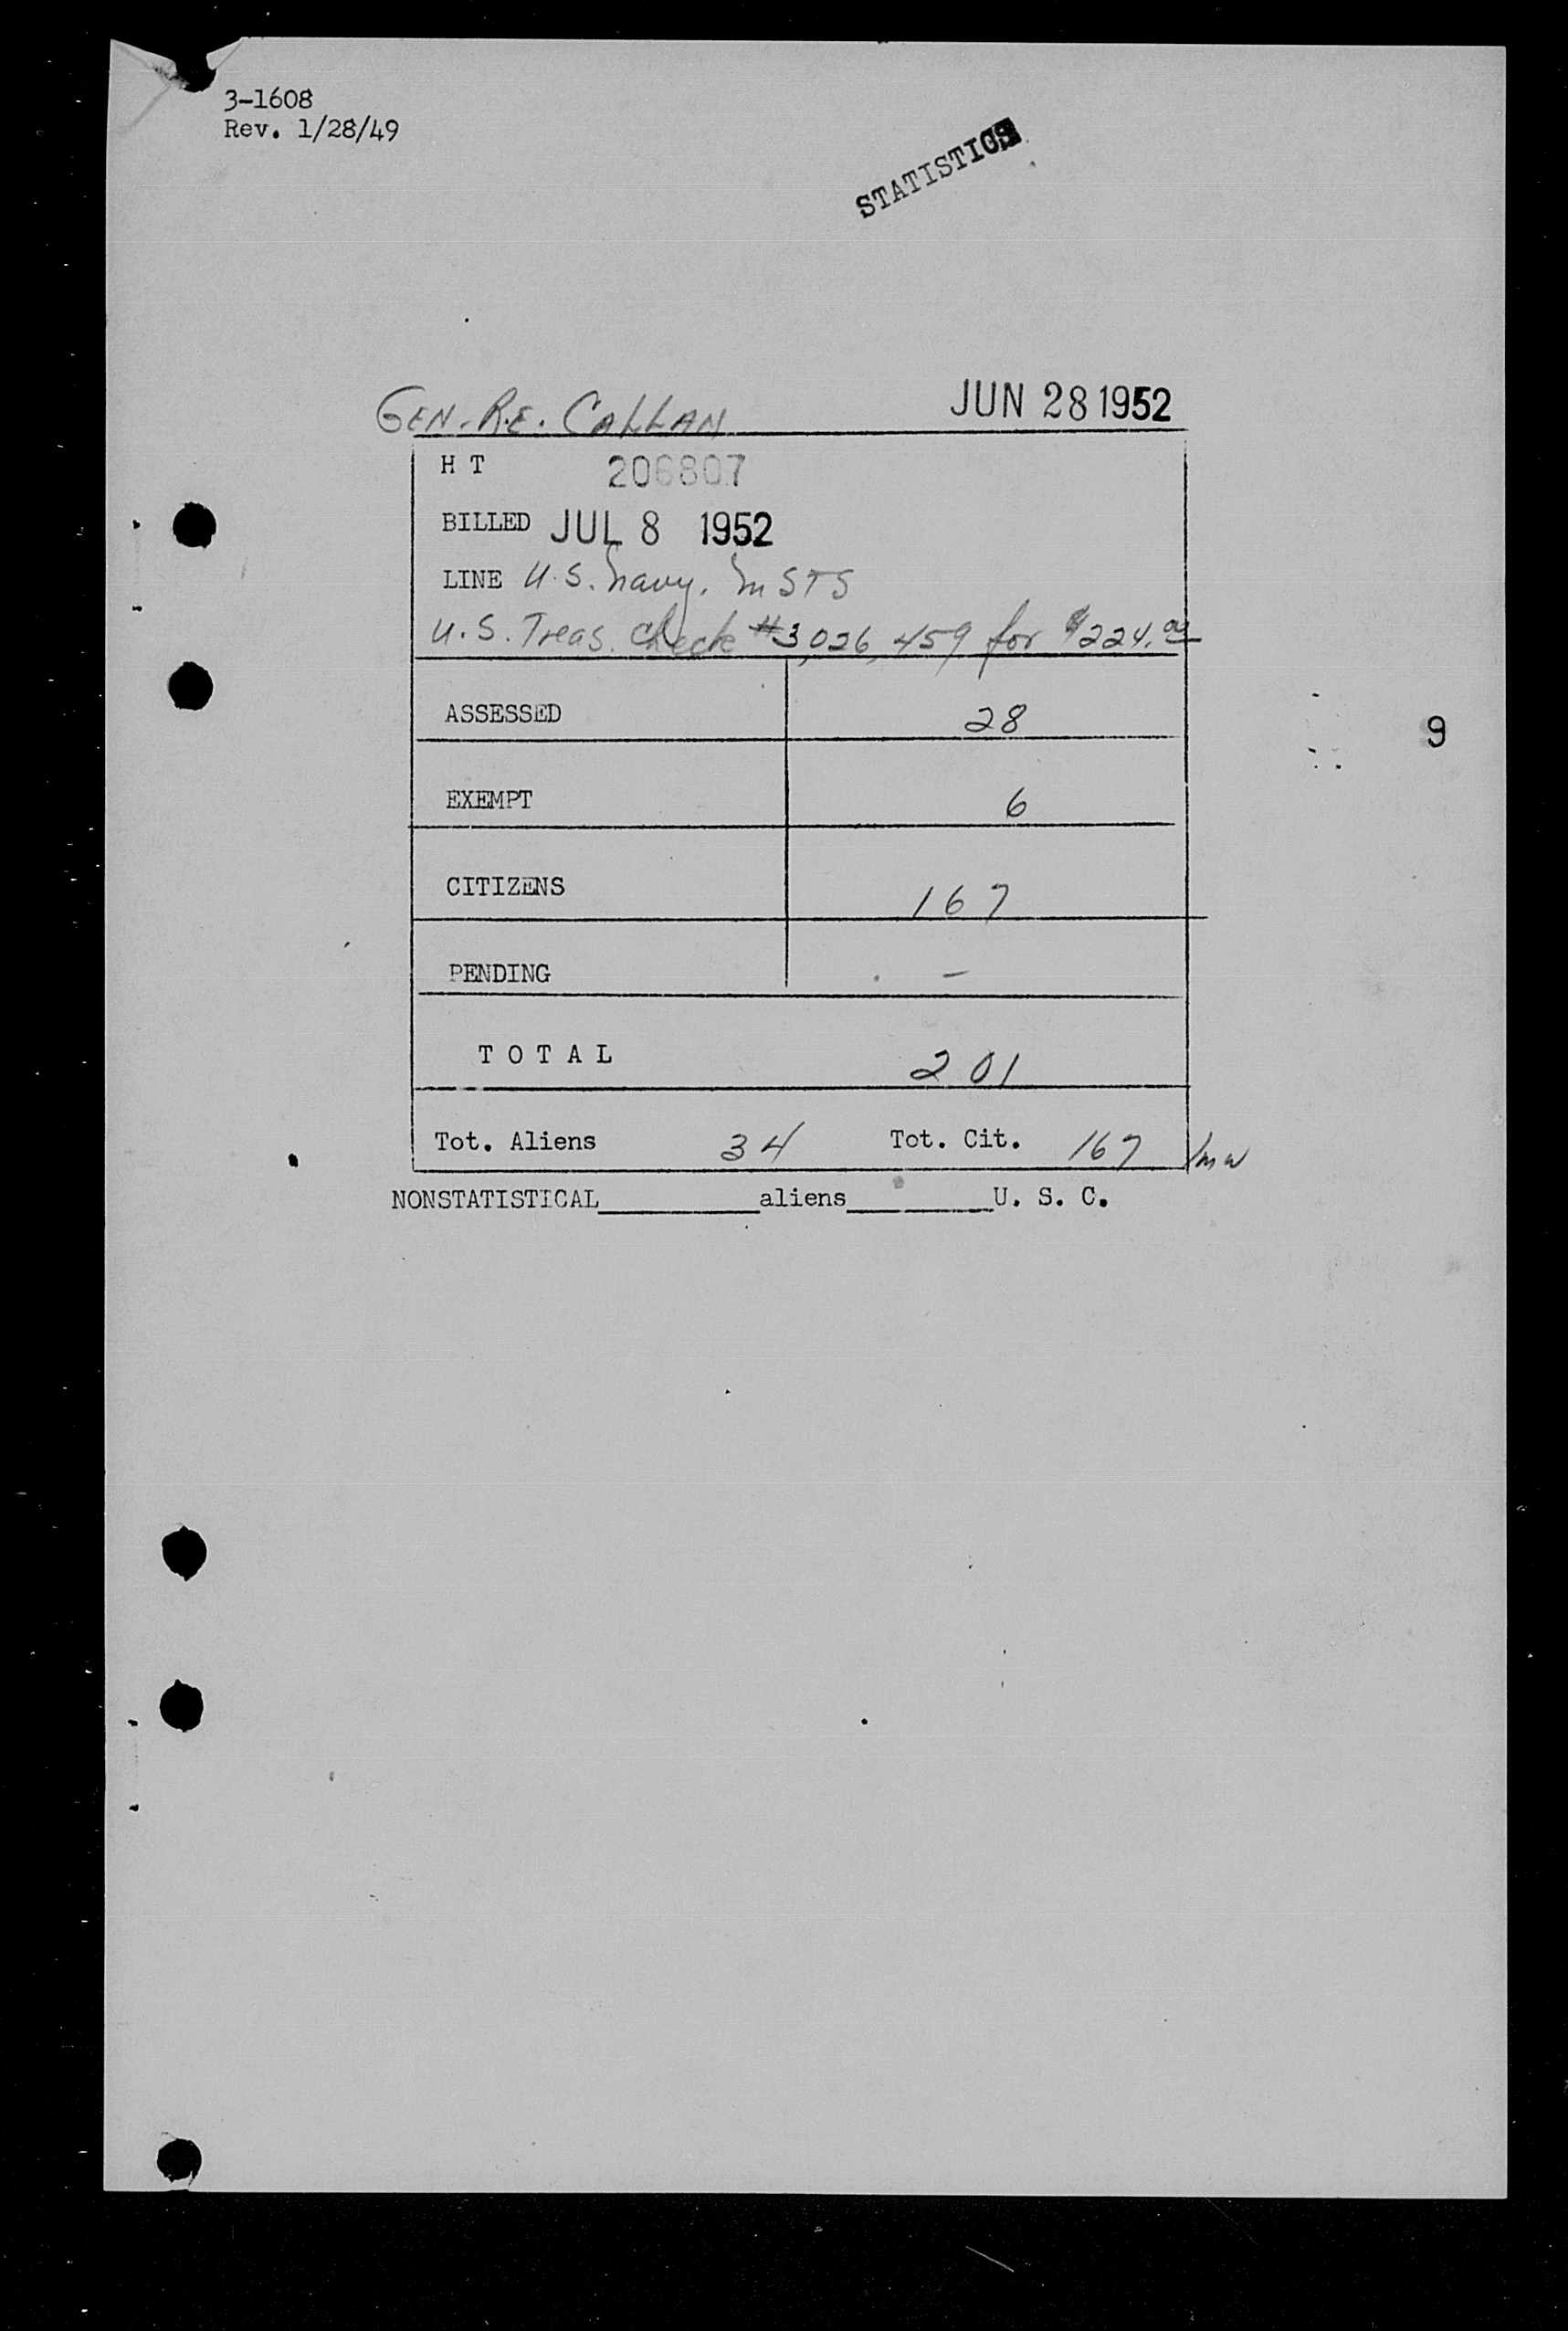 3-1608
Rev. 1/28/49
STATISTICS
GEN. R.E. CALLAN JUN 28 1952
H T 206807
BILLED JUL 8 1952
LINE U.S. Navy. MSTS
U.S. Treas. Check #3,026,459 for $224.00
ASSESSED 28
EXEMPT 6
9
CITIZENS 167
PENDING -
T O T A L 201
Tot. Aliens 34 Tot. Cit. 167 /mw
NONSTATISTICAL__________aliens__________U. S. C.